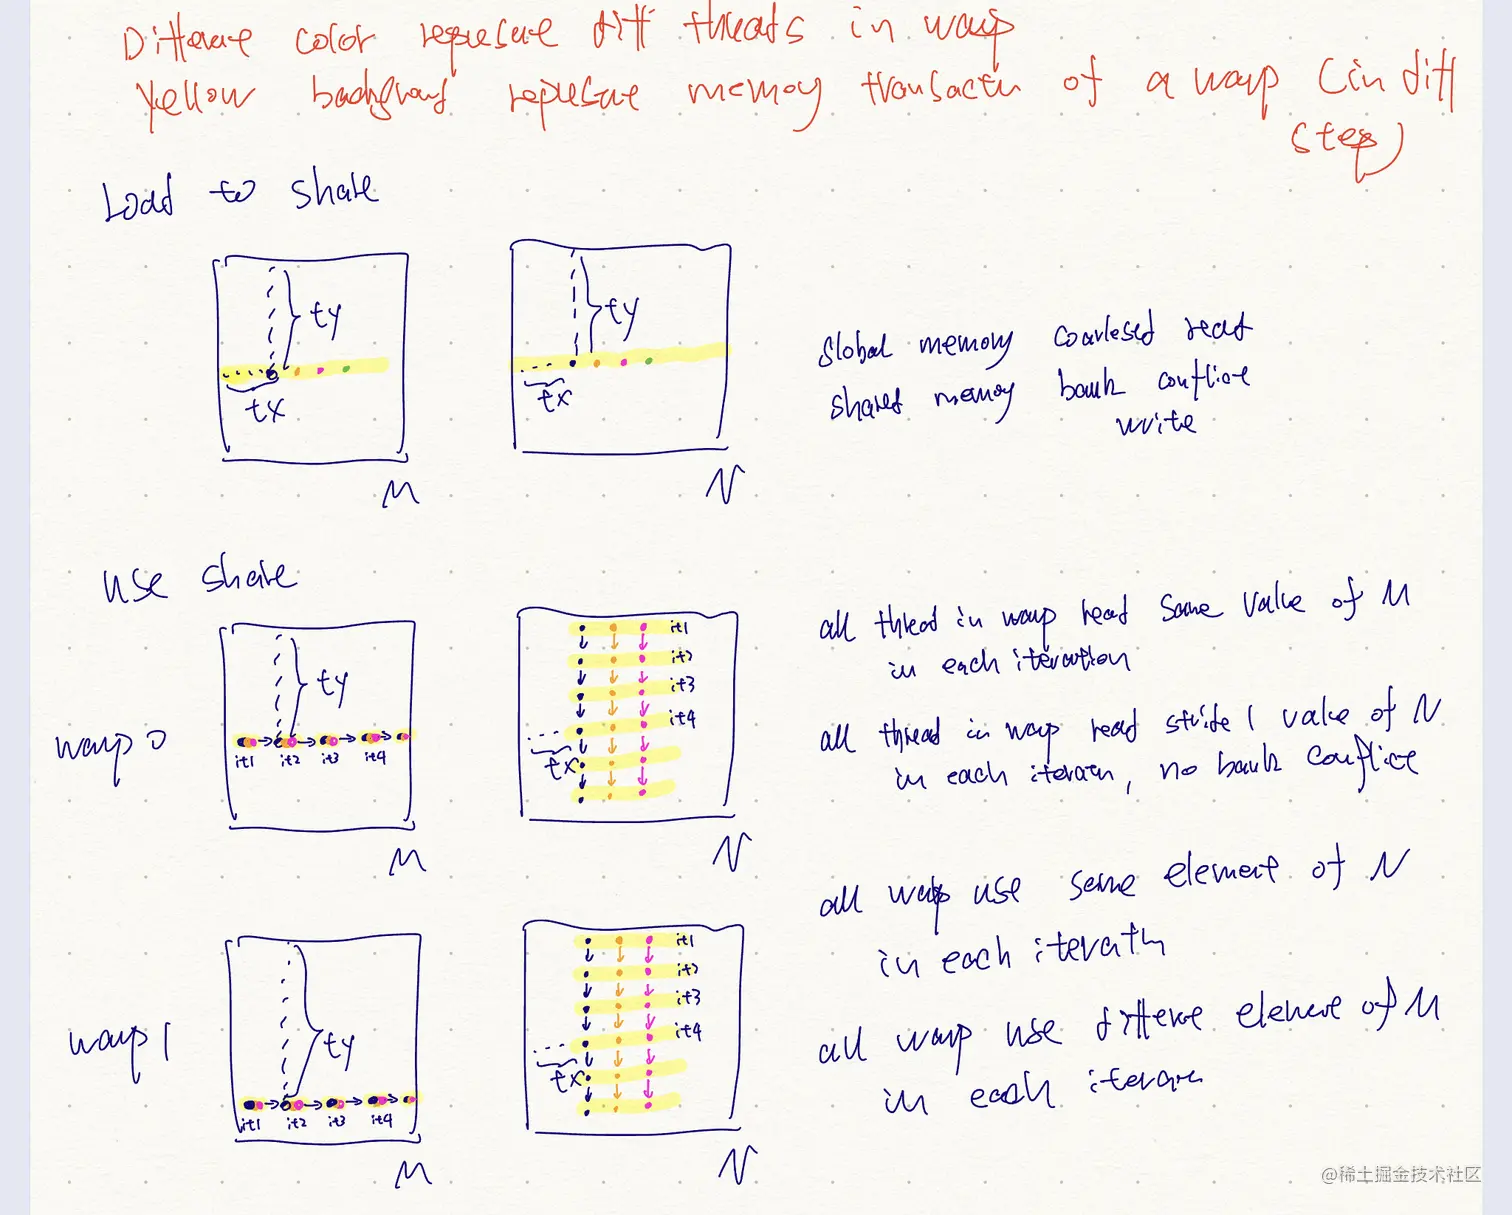 Different color represent diff threads in warp
Yellow background represent memory transaction of a warp (in diff
step)
Load to share
ty
ty
tx
tx
M
N
global memory coarlesed read
shared memory bank conflict
write
use share
warp 0
ty
it1 it2 it3 it4
M
it1
it2
it3
it4
tx
N
all thread in warp read same value of M
in each iteration
all thread in warp read stride 1 value of N
in each iteration, no bank conflict
all warp use same element of N
in each iteration
all warp use different element of M
in each iteration
warp 1
ty
it1 it2 it3 it4
M
it1
it2
it3
it4
tx
N
@稀土掘金技术社区